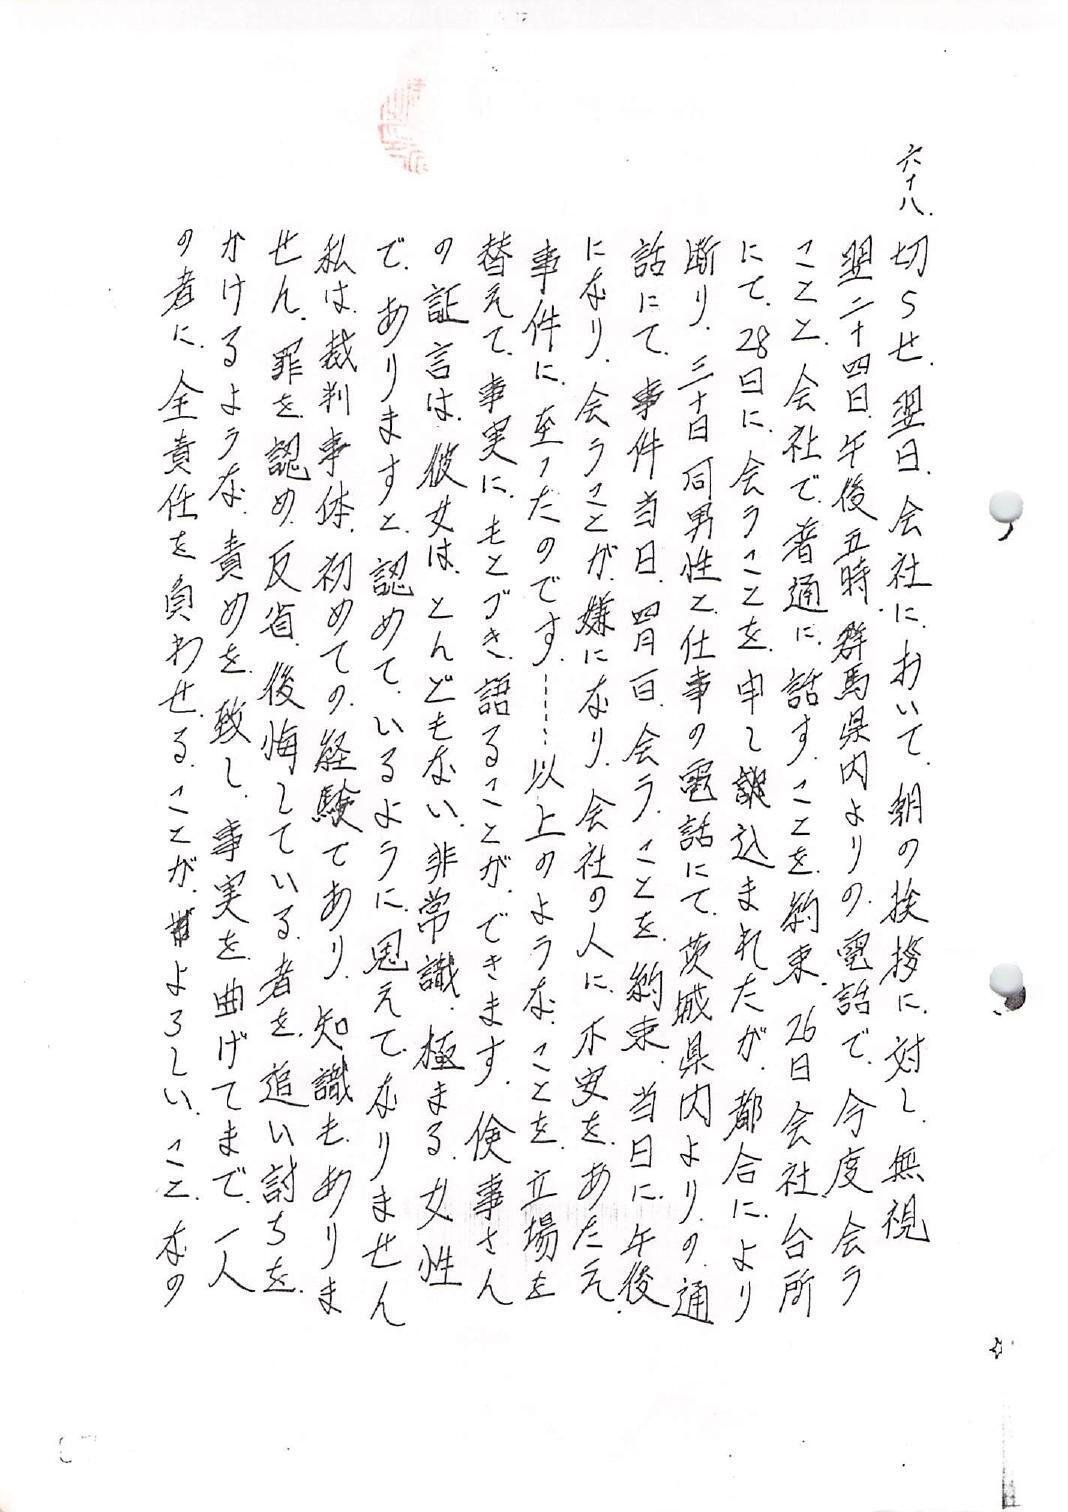 六十八.
切らせ、翌日、会社において、朝の挨拶に対し、無視
翌二十四日、午後五時、群馬県内よりの、電話で、今度、会う
ことと、会社で、普通に、話す、ことを、約束、26日会社台所
にて、28日に、会うことを、申し込まれたが、都合に、より
断り、三十日同男性と、仕事の電話にて、茨城県内よりの通
話にて、事件当日、四月一日、会う、ことを、約束、当日に、午後
になり、会うことが、嫌になり、会社の人に、不安を、あたえ、
事件に、至ったのです、……以上のような、ことを、立場を
替えて、事実に、もとづき、語ることが、できます、倹事さん
の証言は、彼女は、とんどもない、非常識、極まる、女性
で、ありますと、認めて、いるように、思えて、なりません
私は、裁判事体、初めての、経験であり、知識も、ありま
せん、罪を、認め、反省、後悔している、者を、追い討ちを
かけるような、責めを、致し、事実を、曲げてまで、一人
の者に、全責任を負わせる、ことが、よろしい、こと、なの